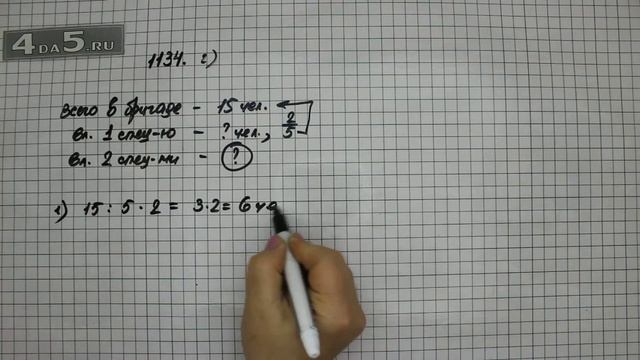 4DA5.RU
1134. г)
всего в бригаде - 15 чел.
вл. 1 спец-ю - ? чел., 2/5
вл. 2 спец-ми - ?
1) 15 : 5 · 2 = 3·2 = 6 че